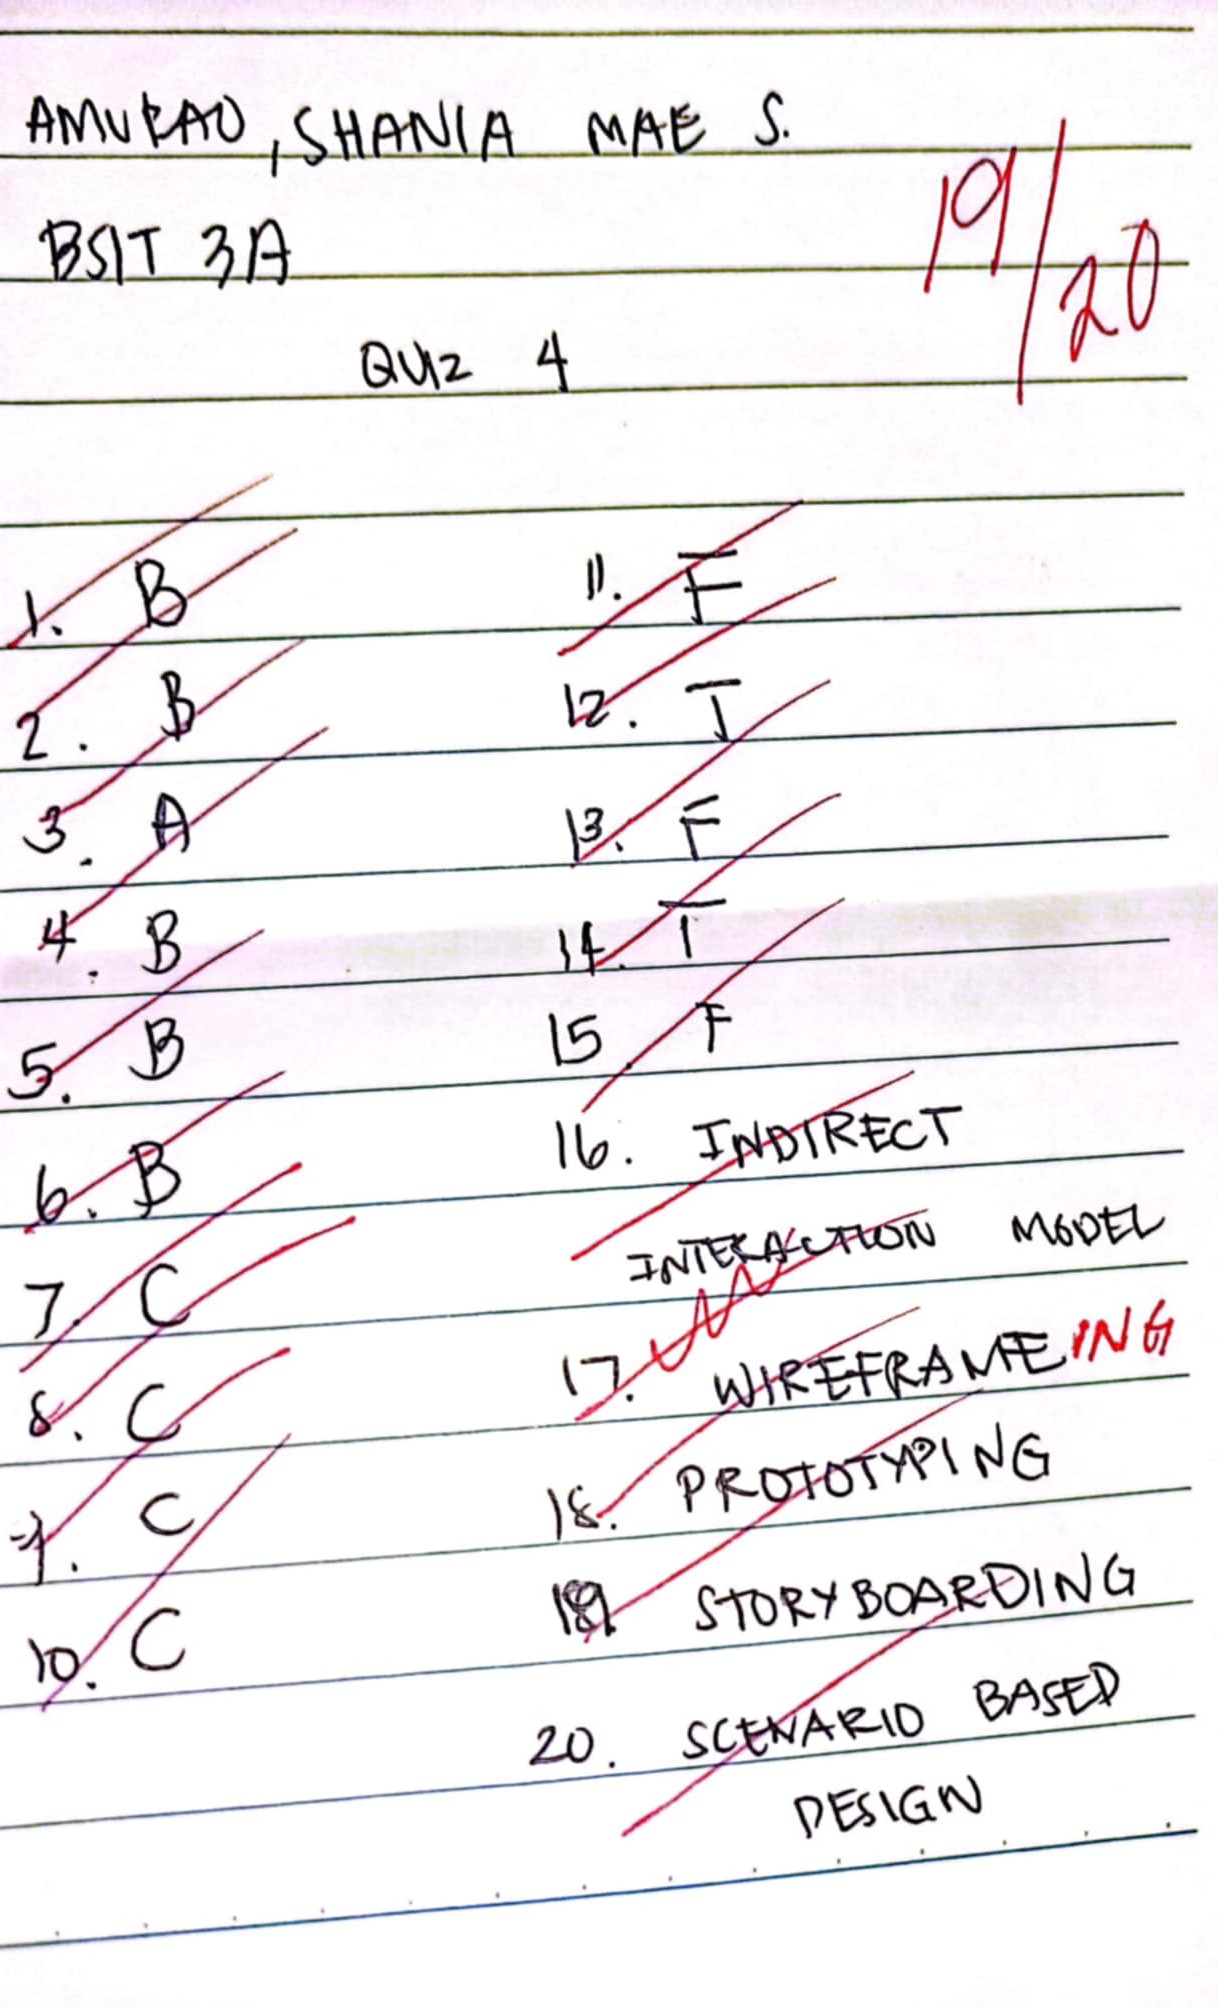 AMURAO, SHANIA MAE S.
BSIT 3A
19/20
QUIZ 4
1. B
2. B
3. A
4. B
5. B
6. B
7. C
8. C
9. C
10. C
11. F
12. T
13. F
14. T
15 F
16. INDIRECT
INTERACTION MODEL
17. WIREFRAMEING
18. PROTOTYPING
19. STORYBOARDING
20. SCENARIO BASED
DESIGN